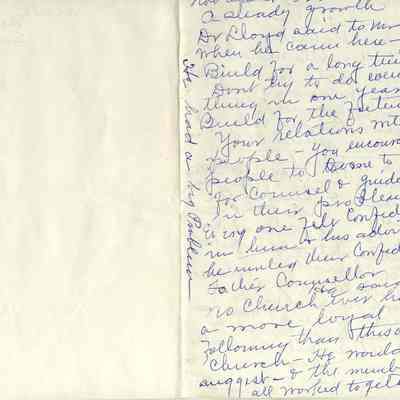 a steady growth
Dr Lloyd said to Mr
when he came here -
Build for a long time
Dont try to do every
thing in one year
Build for the future
Your relations with
people - you encourage
people to come to
for counsel & guidance
in their problems
every one felt confid
in his advice
he invited their confid
Father Counsellor
He said
no Church ever had
a more loyal
following than this
Church - He would
suggest - & the members
all worked together
He had a big Problem